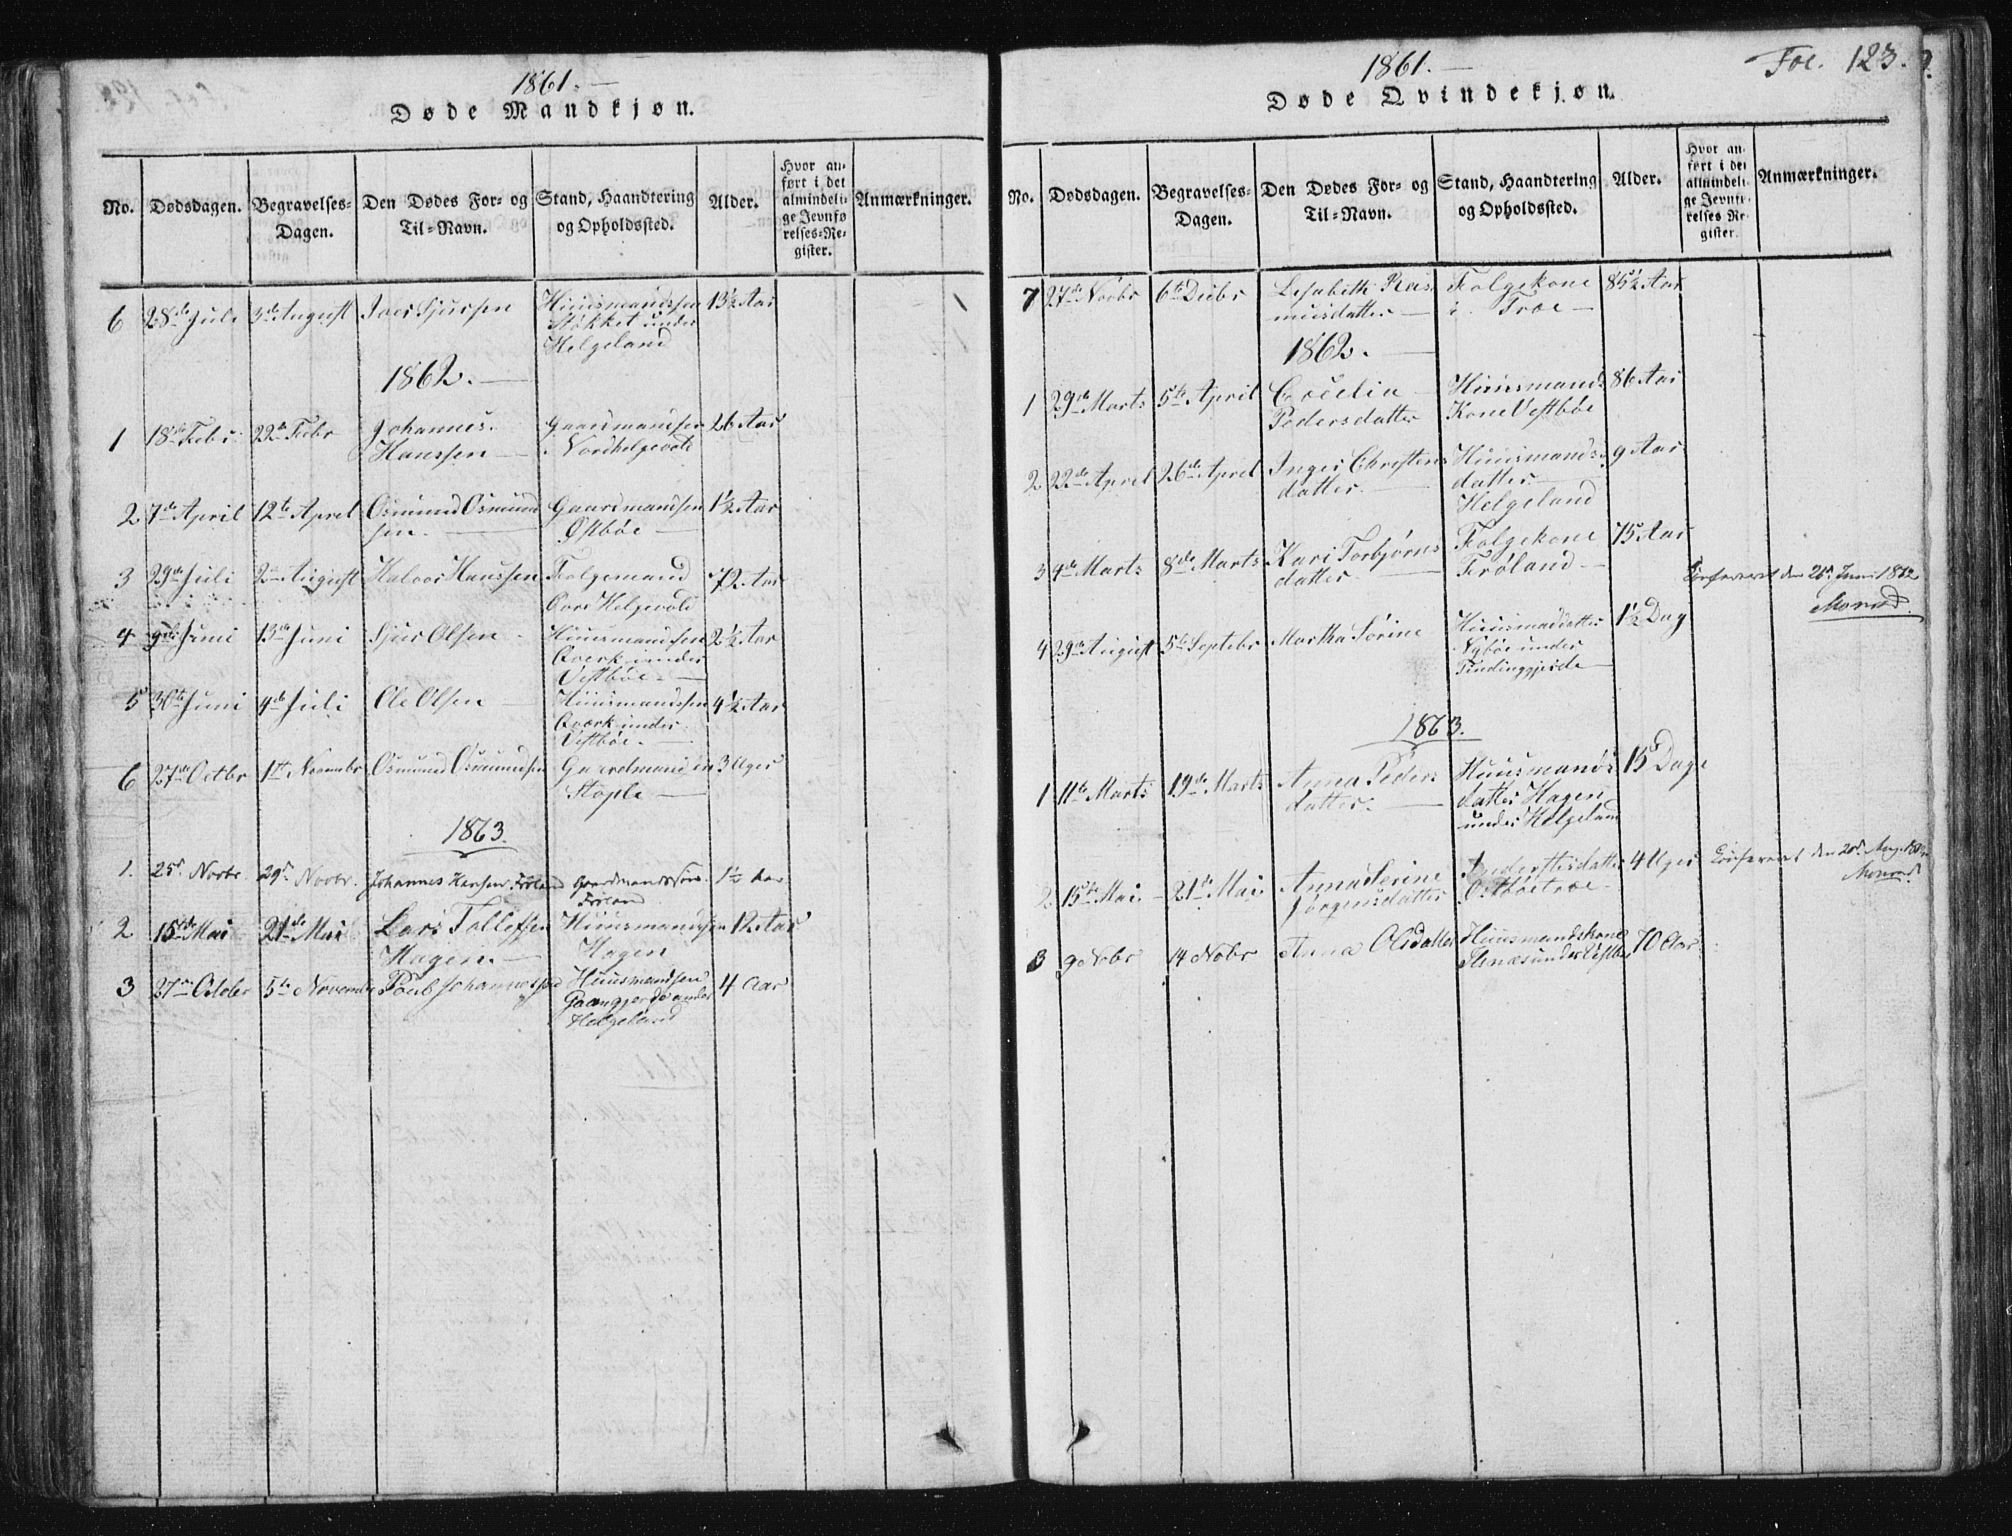 1861.
Døde Mandkjøn.
No. Dødsdagen. Begravelses-Dagen. Den Dødes For- og Til-Navn. Stand, Haandtering og Opholdssted. Alder. Hvor anført i det almindelige Jevnførelses-Register. Anmærkninger.
6 28de Juli 3de August Ivers Sjursen Huusmandssen 13½ Aar
Stokket under
Helgeland
1862.
1 18de Febr. 22de Febr Johannes Gaardmandsen 26 Aar
Hanssen Nordhelgevold
2 7de April 12te April Osmund Osmund Gaardmandsen 1½ Aar
sen. Østbøe
3 29de Juli 2den August Halvor Hanssen Folgemand 72 Aar
Øvre Helgevold
4 9de Juni 13de Juni Sjur Olsen Huusmandsen 2½ Aar
Qværk under
Vestbøe
5 30te Juni 4de Juli Ole Olsen Huusmandssen 4½ Aar
Qværk under
Vestbøe.
6 27de Octbr 1ste Novembr Osmund Osmundsen Gaardmandsen 3 Uger
Stople
1863.
1. 25de Novbr 29de Novbr. Johannes Hansen Frøland Gaardmandssøn. 1½ Aar
Frøland
2 15de Mai 21de Mai Lars Tollefsen Huusmandsen 12 Aar
Hagen Hagen
3 27de October 5te November Poul Johannessen Huusmandsen 4 Aar
under
Helgeland
Fol. 123.
1861.
Døde Qvindekjøn.
No. Dødsdagen. Begravelses-Dagen. Den Dødes For- og Til-Navn. Stand, Haandtering og Opholdssted. Alder. Hvor anført i det almindelige Jevnførelses-Register. Anmærkninger.
7 27de Novbr 6te Decbr Lisabeth Ras Folgekone 85½ Aar
musdatter i Troe
1862.
1 29de Marts 5te April Cecelia Huusmands 86 Aar
Pedersdatter Kone Vestbøe
2 22de April 26de April Inger Christens Huusmands 9 Aar
datter datter
Helgeland
3 4de Marts 8de Marts Kari Torbjørns Folgekone 75 Aar
datter Frøland
Confereret den 26de Juni 1862
Monrad.
4 29de August 5te Septebr Martha Sørine Huusmaddatter 1½ Dag
Nybøe under
Tindinggjerde
1863.
1 11te Marts 19de Marts Anna Peders Huusmands 15 Dage
datter. datter Hagen
under Helgeland
2 15de Mai 21de Mai Anna Serine 4 Uger Conferert den 20de Aug.
Jørgensdatter Østbøetroe Monrad
3 9 Nobr 14 Nobr Anna Olsdatter Huusmandskone 70 Aar
under Vestbø